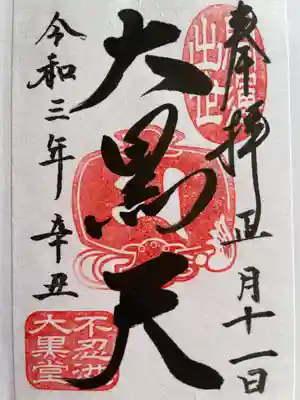 奉拝 正月十一日
出世
大黒天
令和三年 辛丑
不忍池
大黒堂